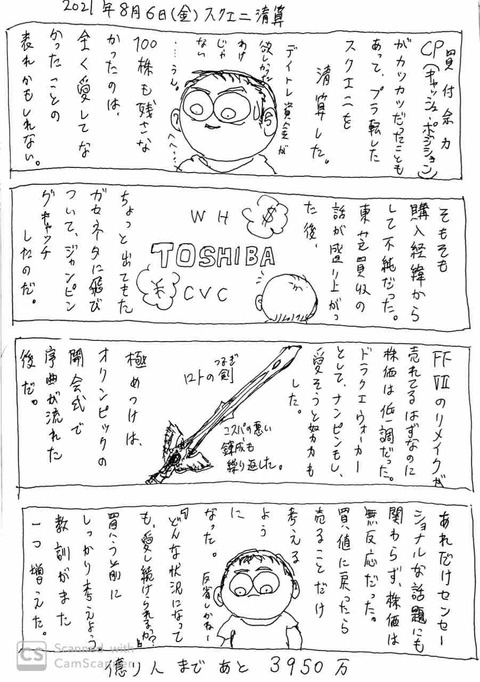 2021年8月6日(金)スクエニ清算
買付余力
CP(キャッシュ・ポジション)
がカツカツだったことも
あって、プラ転した
スクエニを
清算した。
デイトレ資金が
欲しかった
わけ
じゃ
ない
へへ…
100株も残さな
かったのは、
全く愛してな
かったことの
表れかもしれない。
そもそも
購入経緯から
して不純だった。
東芝買収の
話が盛り上がっ
た後、
WH
$
TOSHIBA
¥
CVC
ちょっと出てきた
ガセネタに飛び
ついて、ジャンピン
グキャッチ
したのだ。
FFⅦのリメイクが
売れてるはずなのに
株価は低調だった。
ドラクエウォーカー
として、ナンピンもし、
愛そうと努力も
した。
つなぎ
ロトの剣
コスパの悪い
錬成も
繰り返した。
極めつけは、
オリンピックの
開会式で
序曲が流れた
後だ。
あれだけセンセー
ショナルな話題にも
関わらず、株価は
無反応だった。
買値に戻ったら
売ることだけ
考える
よう
に
なった。
反省しかねー
『どんな状況になって
も、愛し続けられますか?』
買う前に
しっかり考えよう
教訓がまた
一つ増えた。
億り人まであと3950万
CS
Scanned with
CamScanner